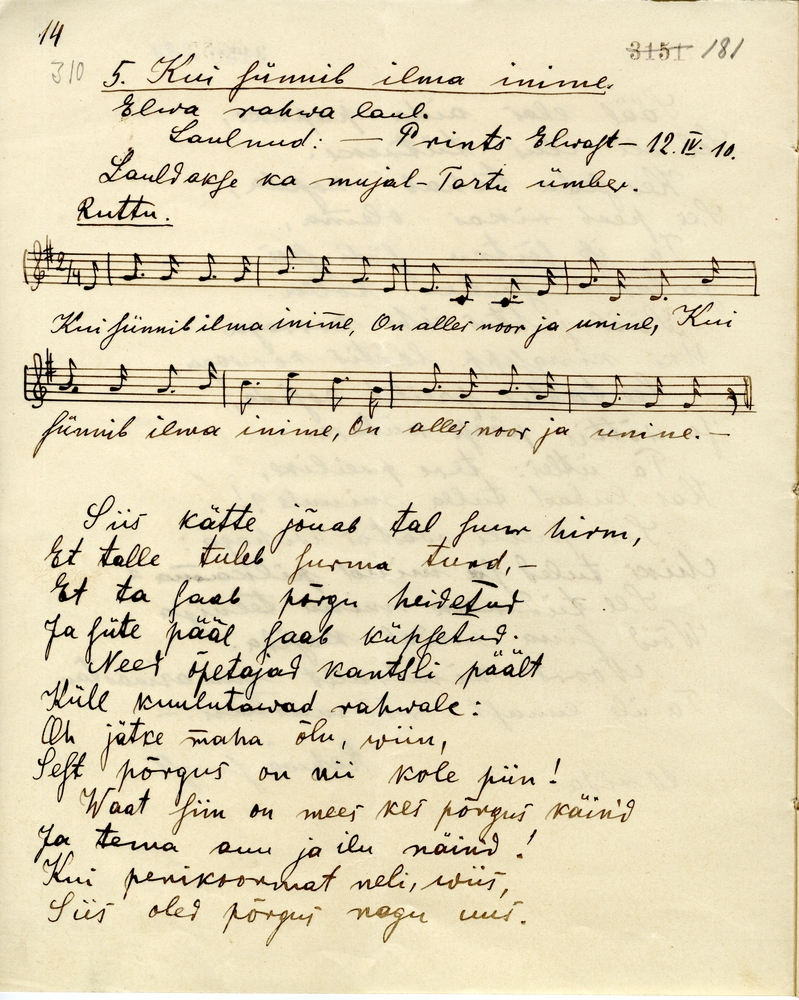 14
310
3151 181
5. Kui sünnib ilma inime.
Elwa rahwa laul.
Laulnud: — Prints Elwast — 12.IV.10.
Lauldakse ka mujal – Tartu ümber.
Ruttu.
2/4
Kui sünnib ilma inime, On alles noor ja unine, Kui
sünnib ilma inime, On alles noor ja unine. —
Siis kätte jõuab tal suur hirm,
Et talle tuleb surma tund, —
Et ta saab põrgu heidetud
Ja süte pääl saab küpsetud.
Need õpetajad kantsli päält
Küll kuulutawad rahwale:
Oh jätke maha õlu, wiin,
Sest põrgus on nii kole piin!
Waat siin on mees kes põrgus käind
Ja tema au ja ilu näind!
Kui penikoormat neli, wiis,
Siis oled põrgus nagu uus.